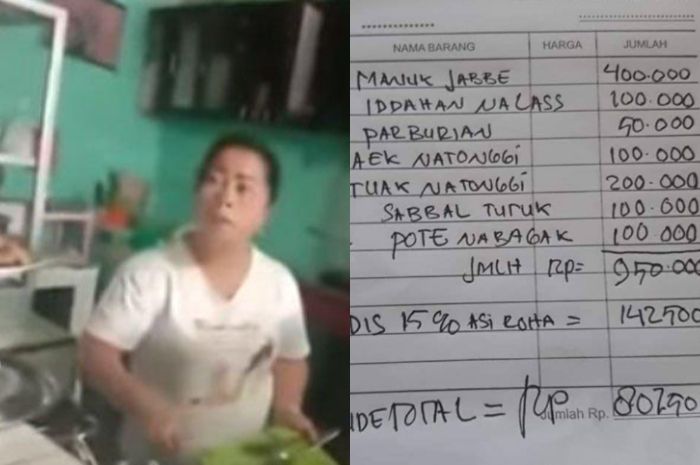 NAMA BARANG HARGA JUMLAH
MANUK JABBE 400.000
IDDAHAN NALASS 100.000
PARBURIAN 50.000
AEK NATONGGI 100.000
TUAK NATONGGI 200.000
SABBAL TUTUK 100.000
POTE NABAGAK 100.000
JMLH Rp= 950.000
DIS 15% ASI ROHA = 142500
NDETOTAL = Rp Jumlah Rp. 80750